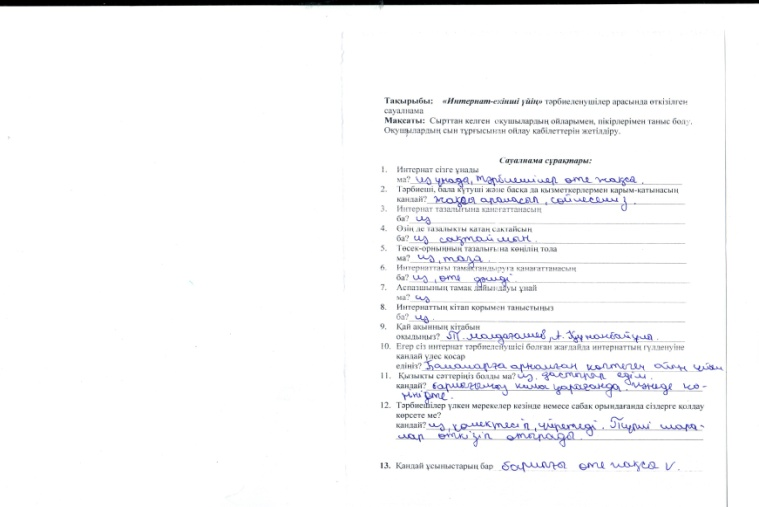 Тақырыбы: «Интернат-екінші үйің» тәрбиеленушілер арасында өткізілген
сауалнама
Мақсаты: Сырттан келген оқушылардың ойларымен, пікірлерімен таныс болу.
Оқушылардың сын тұрғысынан ойлау қабілеттерін жетілдіру.
Сауалнама сұрақтары:
1. Интернат сізге ұнады
ма? иә ұнада, тәрбиешілер өте жақсы.
2. Тәрбиеші, бала күтуші және басқа да қызметкерлермен қарым-қатынасың
қандай? жақсы араласып, сөйлесеміз
3. Интернат тазалығына қанағаттанасың
ба? иә
4. Өзің де тазалықты қатаң сақтайсың
ба? иә сақтаймын.
5. Төсек-орныңның тазалығына көңілің тола
ма? иә, таза.
6. Интернаттағы тамақтандыруға қанағаттанасың
ба? иә, өте дәмді
7. Аспазшының тамақ дайындауы ұнай
ма? иә
8. Интернаттың кітап қорымен таныстыңыз
ба? иә.
9. Қай ақынның кітабын
оқыдыңыз? Т. Молдағалиев, А. Құнанбайұлы.
10. Егер сіз интернат тәрбиеленушісі болған жағдайда интернаттың гүлденуіне
қандай үлес қосар
едіңіз? Балаларға арналған көптеген ойын үйін
11. Қызықты сәттеріңіз болды ма? иә, жастарап едім.
қандай? барлығымыз кино қарағанда
12. Тәрбиешілер үлкен мерекелер кезінде немесе сабақ орындағанда сіздерге қолдау
көрсете ме?
қандай? иә, көмектесіп, үйретеді. Түрлі шара-
лар өткізіп отырады.
13. Қандай ұсыныстарың бар барлығы өте жақсы